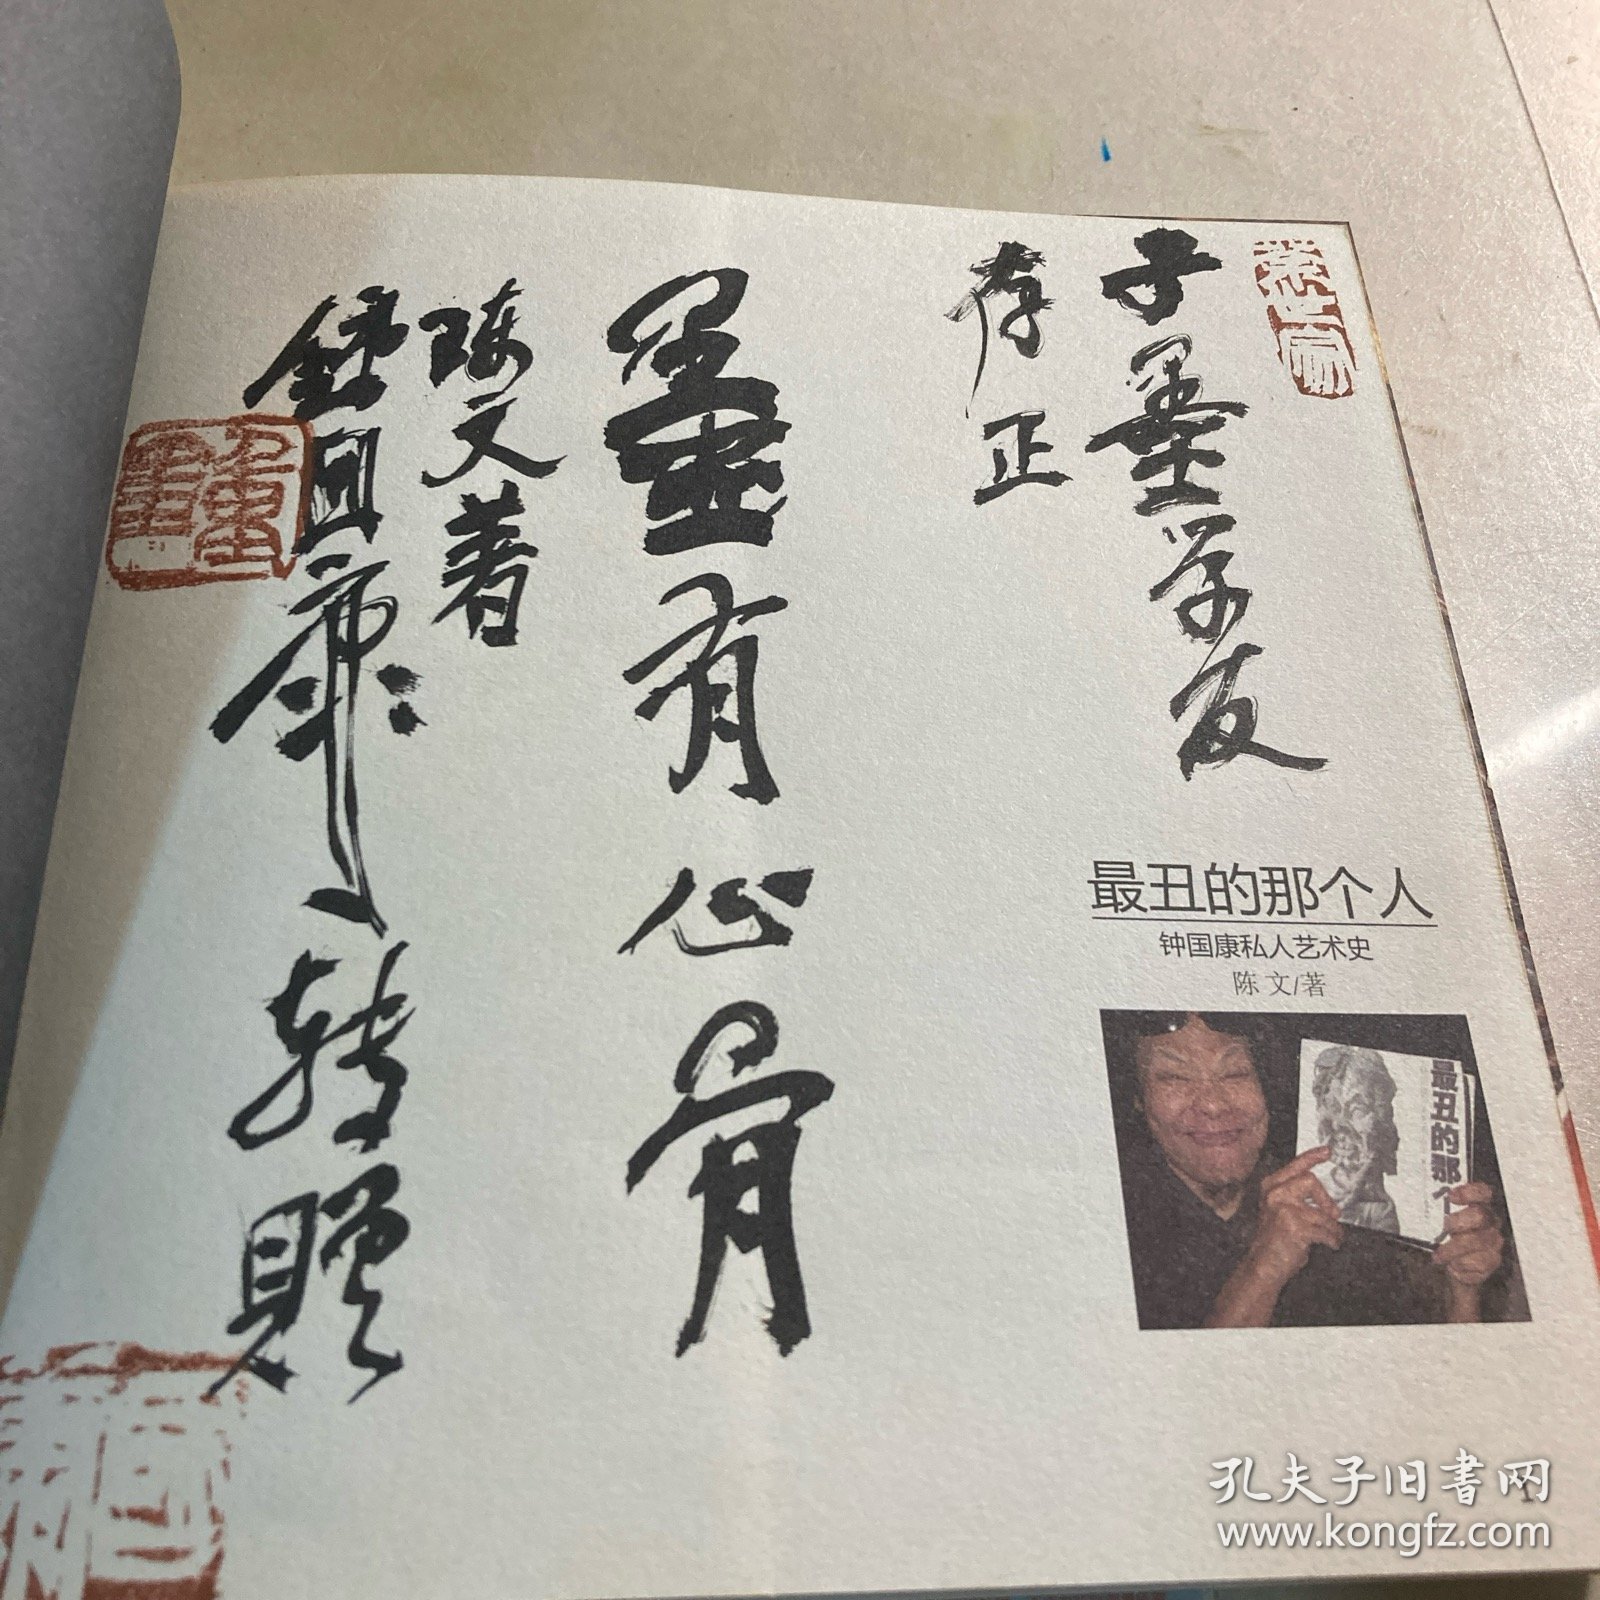 子墨学友
存正
有心骨
陈文著
鍾国康转贈
最丑的那个人
钟国康私人艺术史
陈 文/著
最丑的那个
孔夫子旧书网
www.kongfz.com
1